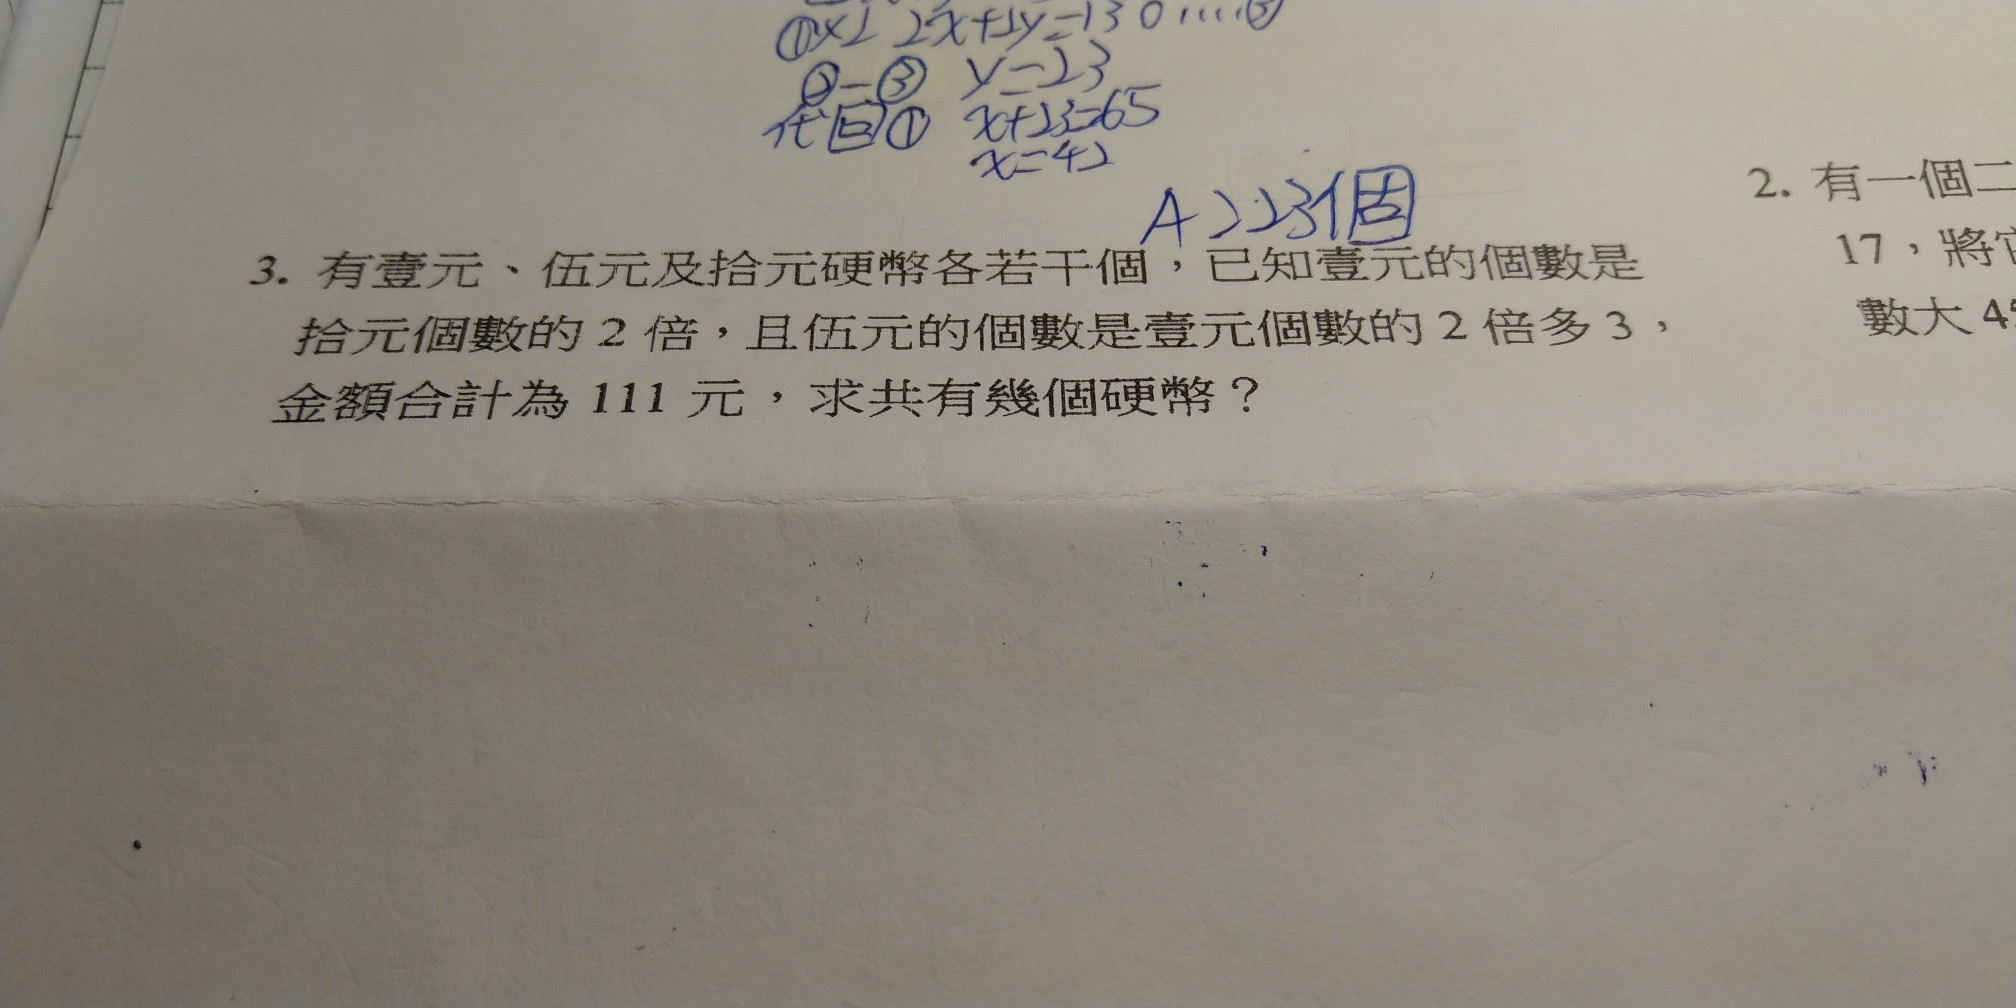 ①×2 2x+2y=130....③
②-③ y=23
代回① x+23=65
x=42
A>23個
3. 有壹元、伍元及拾元硬幣各若干個,已知壹元的個數是
拾元個數的 2 倍,且伍元的個數是壹元個數的 2 倍多 3,
金額合計為 111 元,求共有幾個硬幣?
2. 有一個二
17,將
數大 4